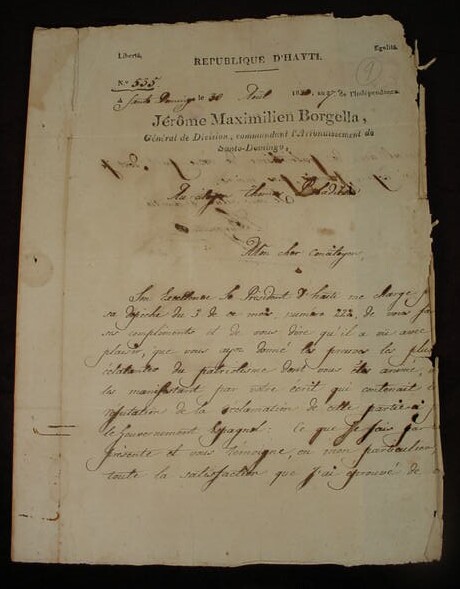 Liberté, Egalité.
REPUBLIQUE D'HAYTI.
N.º 535
A Santo Domingo le 30 Avril 1830, an 27e de l'Indépendance.
Jérôme Maximilien Borgella,
Général de Division, commandant l'Arrondissement de
Santo-Domingo,
Au citoyen
Mon cher concitoyen,
Son Excellence le Président d'haiti me charge
sa depêche du 3 de ce mois numero 222, de vous
ses compliments et de vous dire qu'il a vu avec
plaisir, que vous ayez donné les preuves les plus
éclatantes du patriotisme dont vous êtes animé, en
les manifestant par votre écrit qui contenait la
refutation de la réclamation de cette partie
le Gouvernement Espagnol: Ce que je fais par
présente et vous témoigne, en mon particulier
toute la satisfaction que j'ai éprouvé de